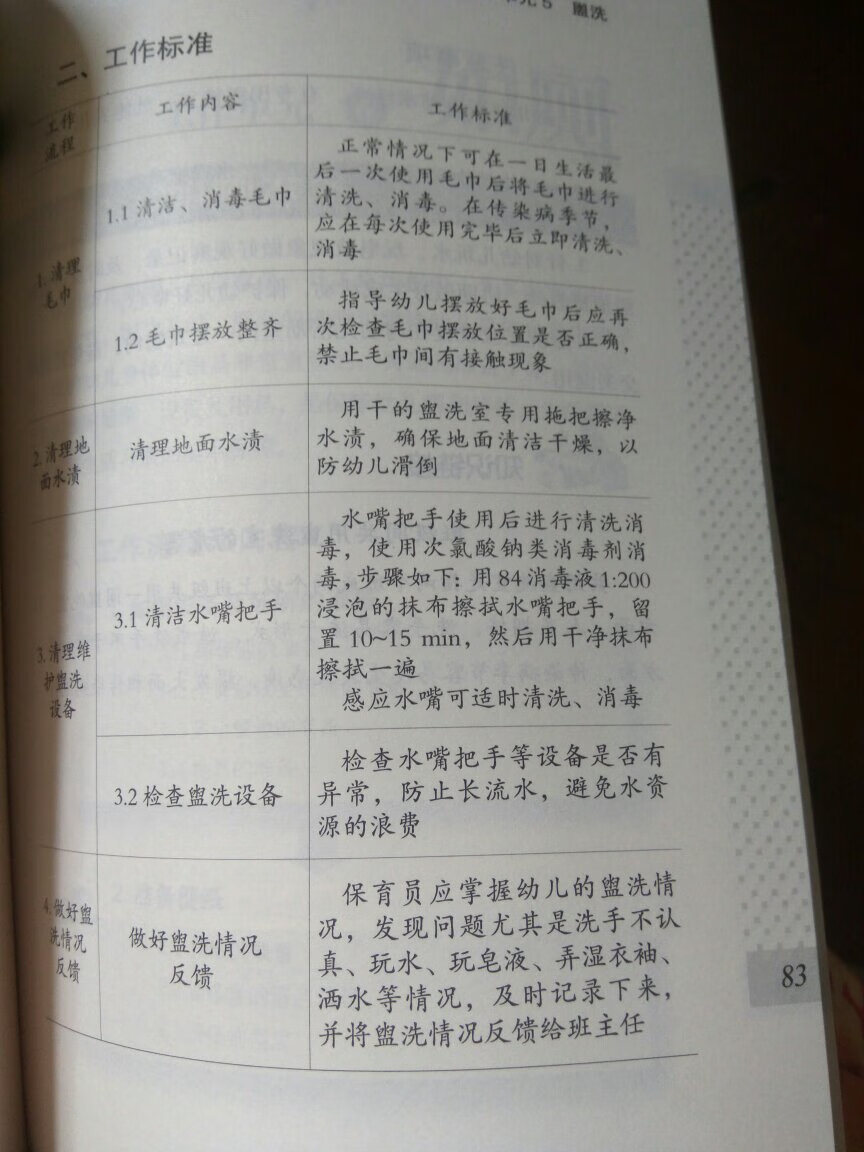 元5 盥洗
二、工作标准
工作
流程
工作内容
工作标准
1. 清理
毛巾
1.1 清洁、消毒毛巾
正常情况下可在一日生活最
后一次使用毛巾后将毛巾进行
清洗、消毒。在传染病季节，
应在每次使用完毕后立即清洗、
消毒
1.2 毛巾摆放整齐
指导幼儿摆放好毛巾后应再
次检查毛巾摆放位置是否正确，
禁止毛巾间有接触现象
2. 清理地
面水渍
清理地面水渍
用干的盥洗室专用拖把擦净
水渍，确保地面清洁干燥，以
防幼儿滑倒
3. 清理维
护盥洗
设备
3.1 清洁水嘴把手
水嘴把手使用后进行清洗消
毒，使用次氯酸钠类消毒剂消
毒，步骤如下：用 84 消毒液 1:200
浸泡的抹布擦拭水嘴把手，留
置 10~15 min，然后用干净抹布
擦拭一遍
感应水嘴可适时清洗、消毒
3.2 检查盥洗设备
检查水嘴把手等设备是否有
异常，防止长流水，避免水资
源的浪费
4. 做好盥
洗情况
反馈
做好盥洗情况
反馈
保育员应掌握幼儿的盥洗情
况，发现问题尤其是洗手不认
真、玩水、玩皂液、弄湿衣袖、
洒水等情况，及时记录下来，
并将盥洗情况反馈给班主任
83